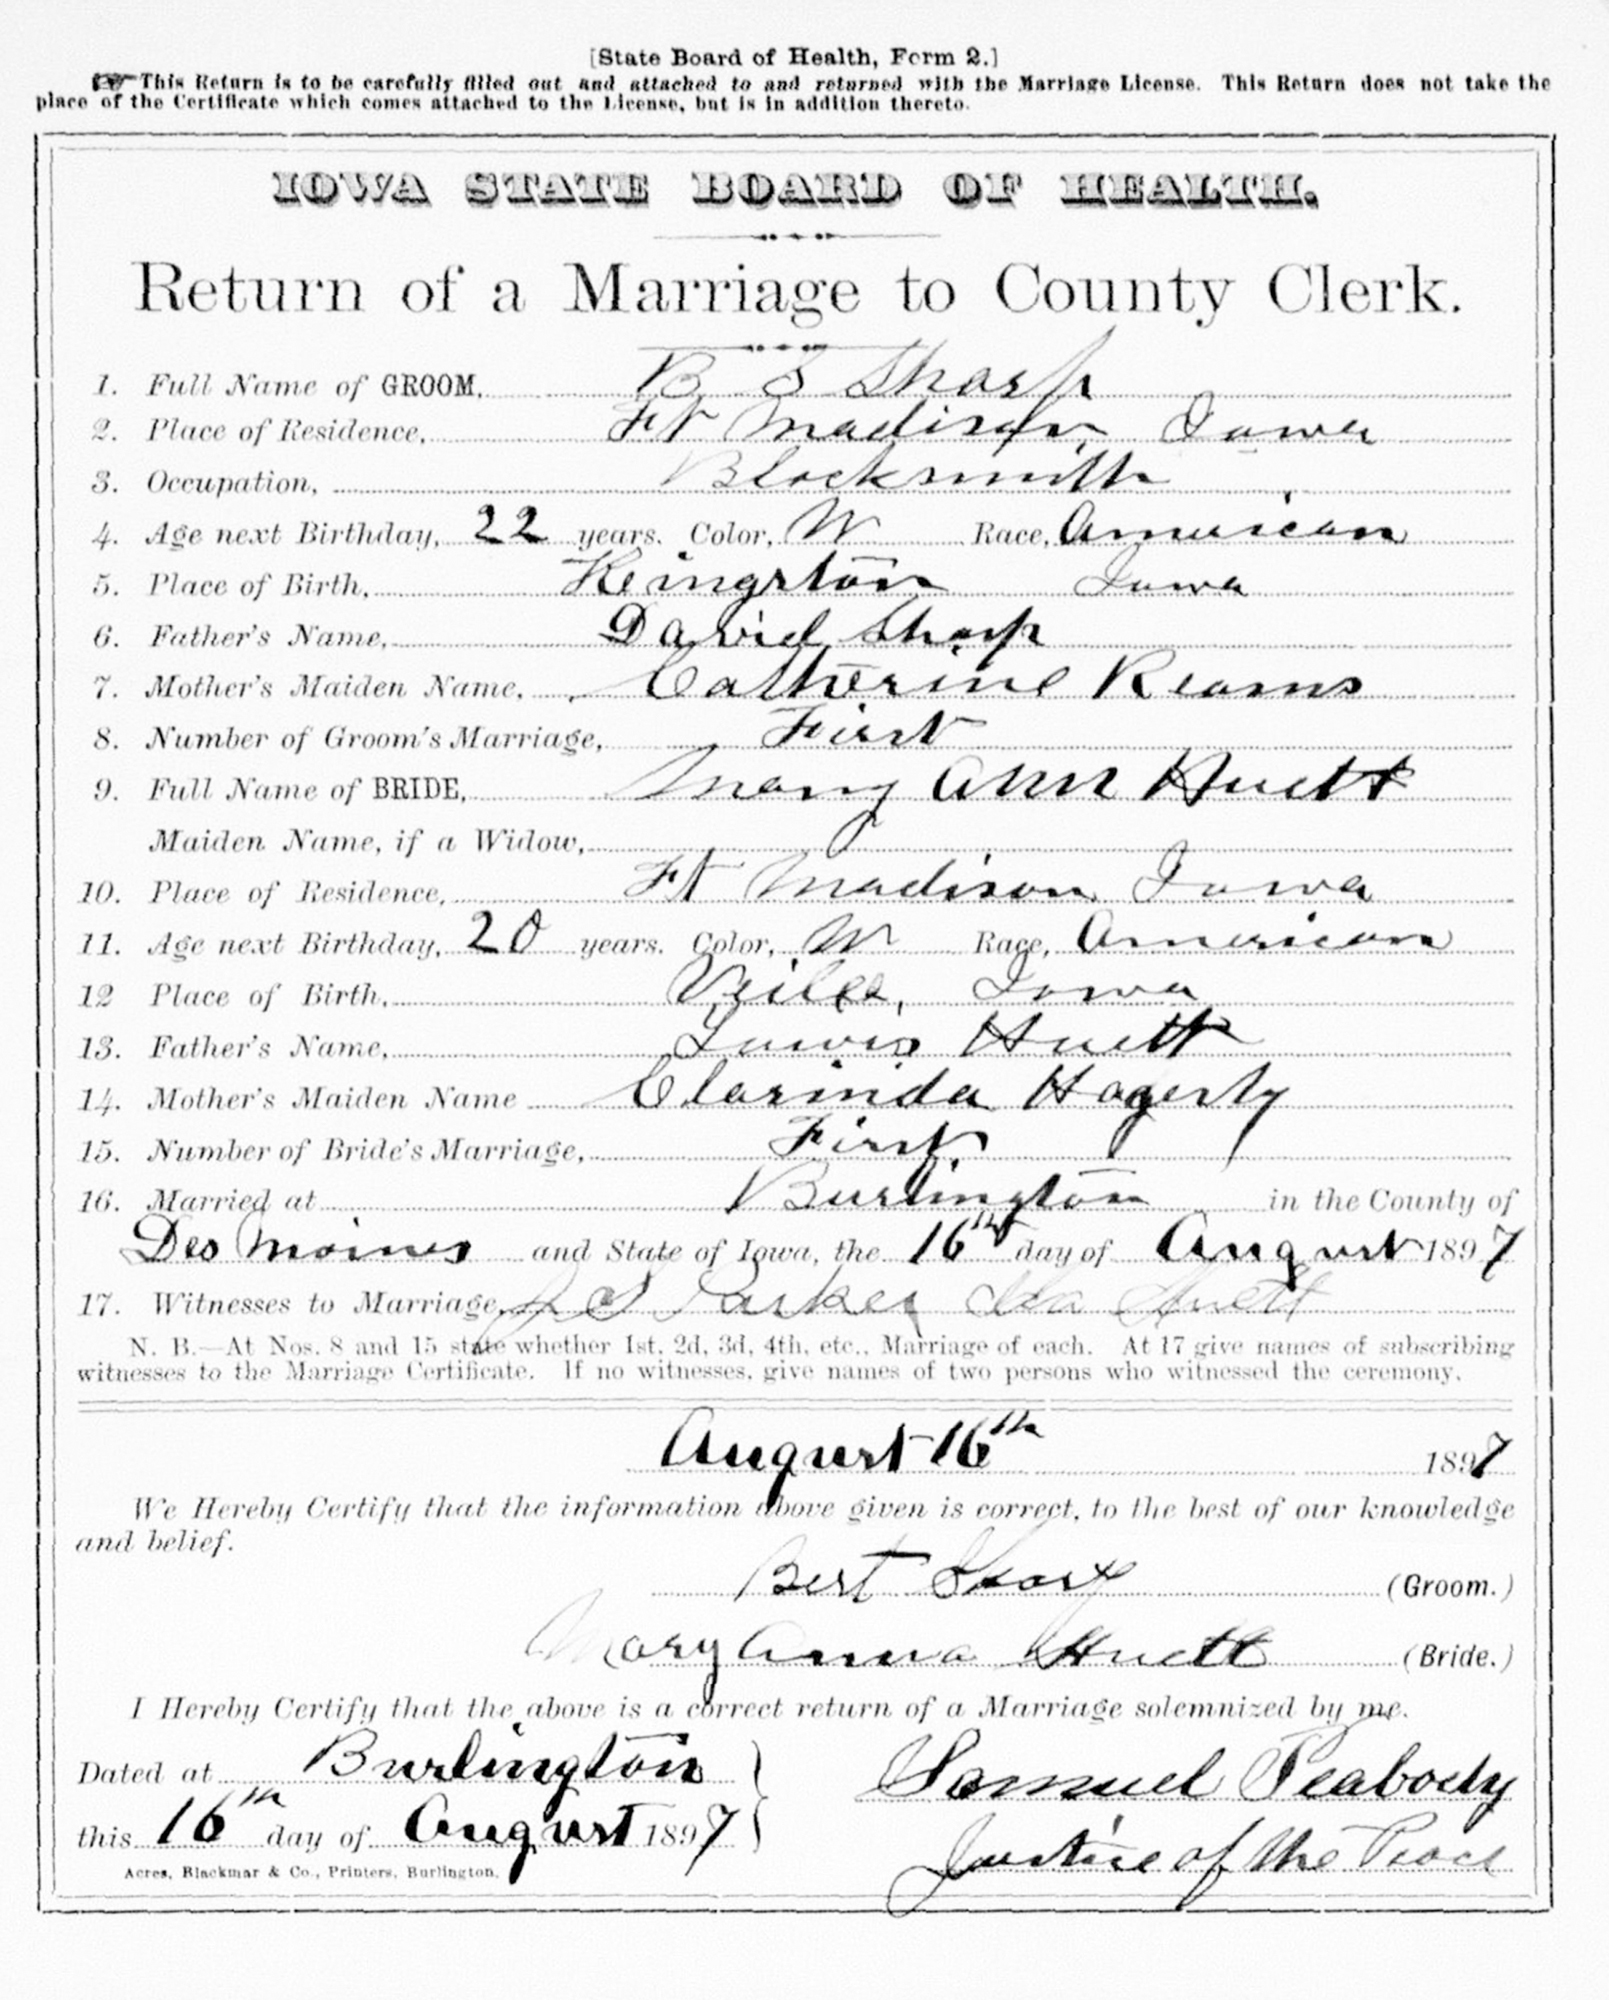 [State Board of Health, Form 2.]
This Return is to be carefully filled out and attached to and returned with the Marriage License. This Return does not take the
place of the Certificate which comes attached to the License, but is in addition thereto.
IOWA STATE BOARD OF HEALTH.
Return of a Marriage to County Clerk.
1. Full Name of GROOM, B S Sharp
2. Place of Residence, Ft Madison, Iowa
3. Occupation, Blacksmith
4. Age next Birthday, 22 years. Color, W Race, American
5. Place of Birth, Keingston Iowa
6. Father's Name, David Sharp
7. Mother's Maiden Name, Catherine Reams
8. Number of Groom's Marriage, First
9. Full Name of BRIDE, Mary Ann Huett
Maiden Name, if a Widow,
10. Place of Residence, Ft Madison, Iowa
11. Age next Birthday, 20 years. Color, W Race, American
12 Place of Birth, Iowa
13. Father's Name, Lewis Huett
14. Mother's Maiden Name Clarinda Hagerty
15. Number of Bride's Marriage, First
16. Married at Burlington in the County of
Des Moines and State of Iowa, the 16th day of August 1897
17. Witnesses to Marriage, J S Parker Huett
N. B.—At Nos. 8 and 15 state whether 1st, 2d, 3d, 4th, etc., Marriage of each. At 17 give names of subscribing
witnesses to the Marriage Certificate. If no witnesses, give names of two persons who witnessed the ceremony.
August 16th 1897
We Hereby Certify that the information above given is correct, to the best of our knowledge
and belief.
Bert Sharp (Groom.)
Mary Anna Huett (Bride.)
I Hereby Certify that the above is a correct return of a Marriage solemnized by me.
Dated at Burlington
this 16th day of August 1897
Samuel Peabody
Justice of the Peace
Acres, Blackmar & Co., Printers, Burlington.